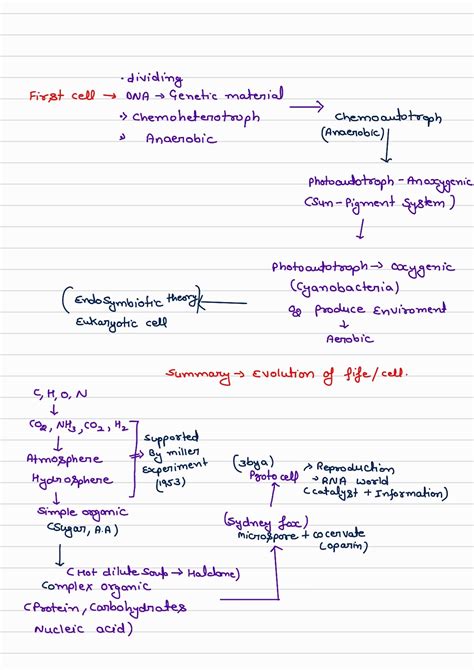 • dividing
First cell → DNA → Genetic material
→ Chemoheterotroph
→ Anaerobic
→ Chemoautotroph
(Anaerobic)
↓
Photoautotroph - Anoxygenic
(Sun - Pigment System)
↓
Photoautotroph → Oxygenic
(Cyanobacteria)
O2 produce Enviroment
↓
Aerobic
(EndoSymbiotic theory) ←
Eukaryotic cell
Summary → Evolution of life/cell.
C, H, O, N
↓
CO2, NH3, CO2, H2
↓
Atmosphere
Hydrosphere
Supported
→ By miller
Experiment
(1953)
↓
Simple organic
(Sugar, A.A)
↓
(Hot dilute Soup → Haldane)
Complex organic
(Protein, Carbohydrates
Nucleic acid)
(Sydney fox)
microspore + cocervate
(oparin)
(3bya)
Protocell
→ Reproduction
→ RNA world
(catalyst + Information)